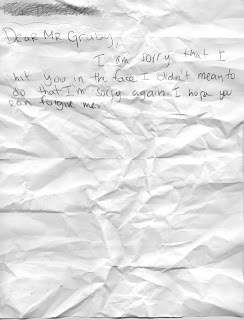 Dear Mr Graby,
I am sorry that I
hit you in the face I didn't mean to
do that I'm sorry again. I hope you
can forgive me.